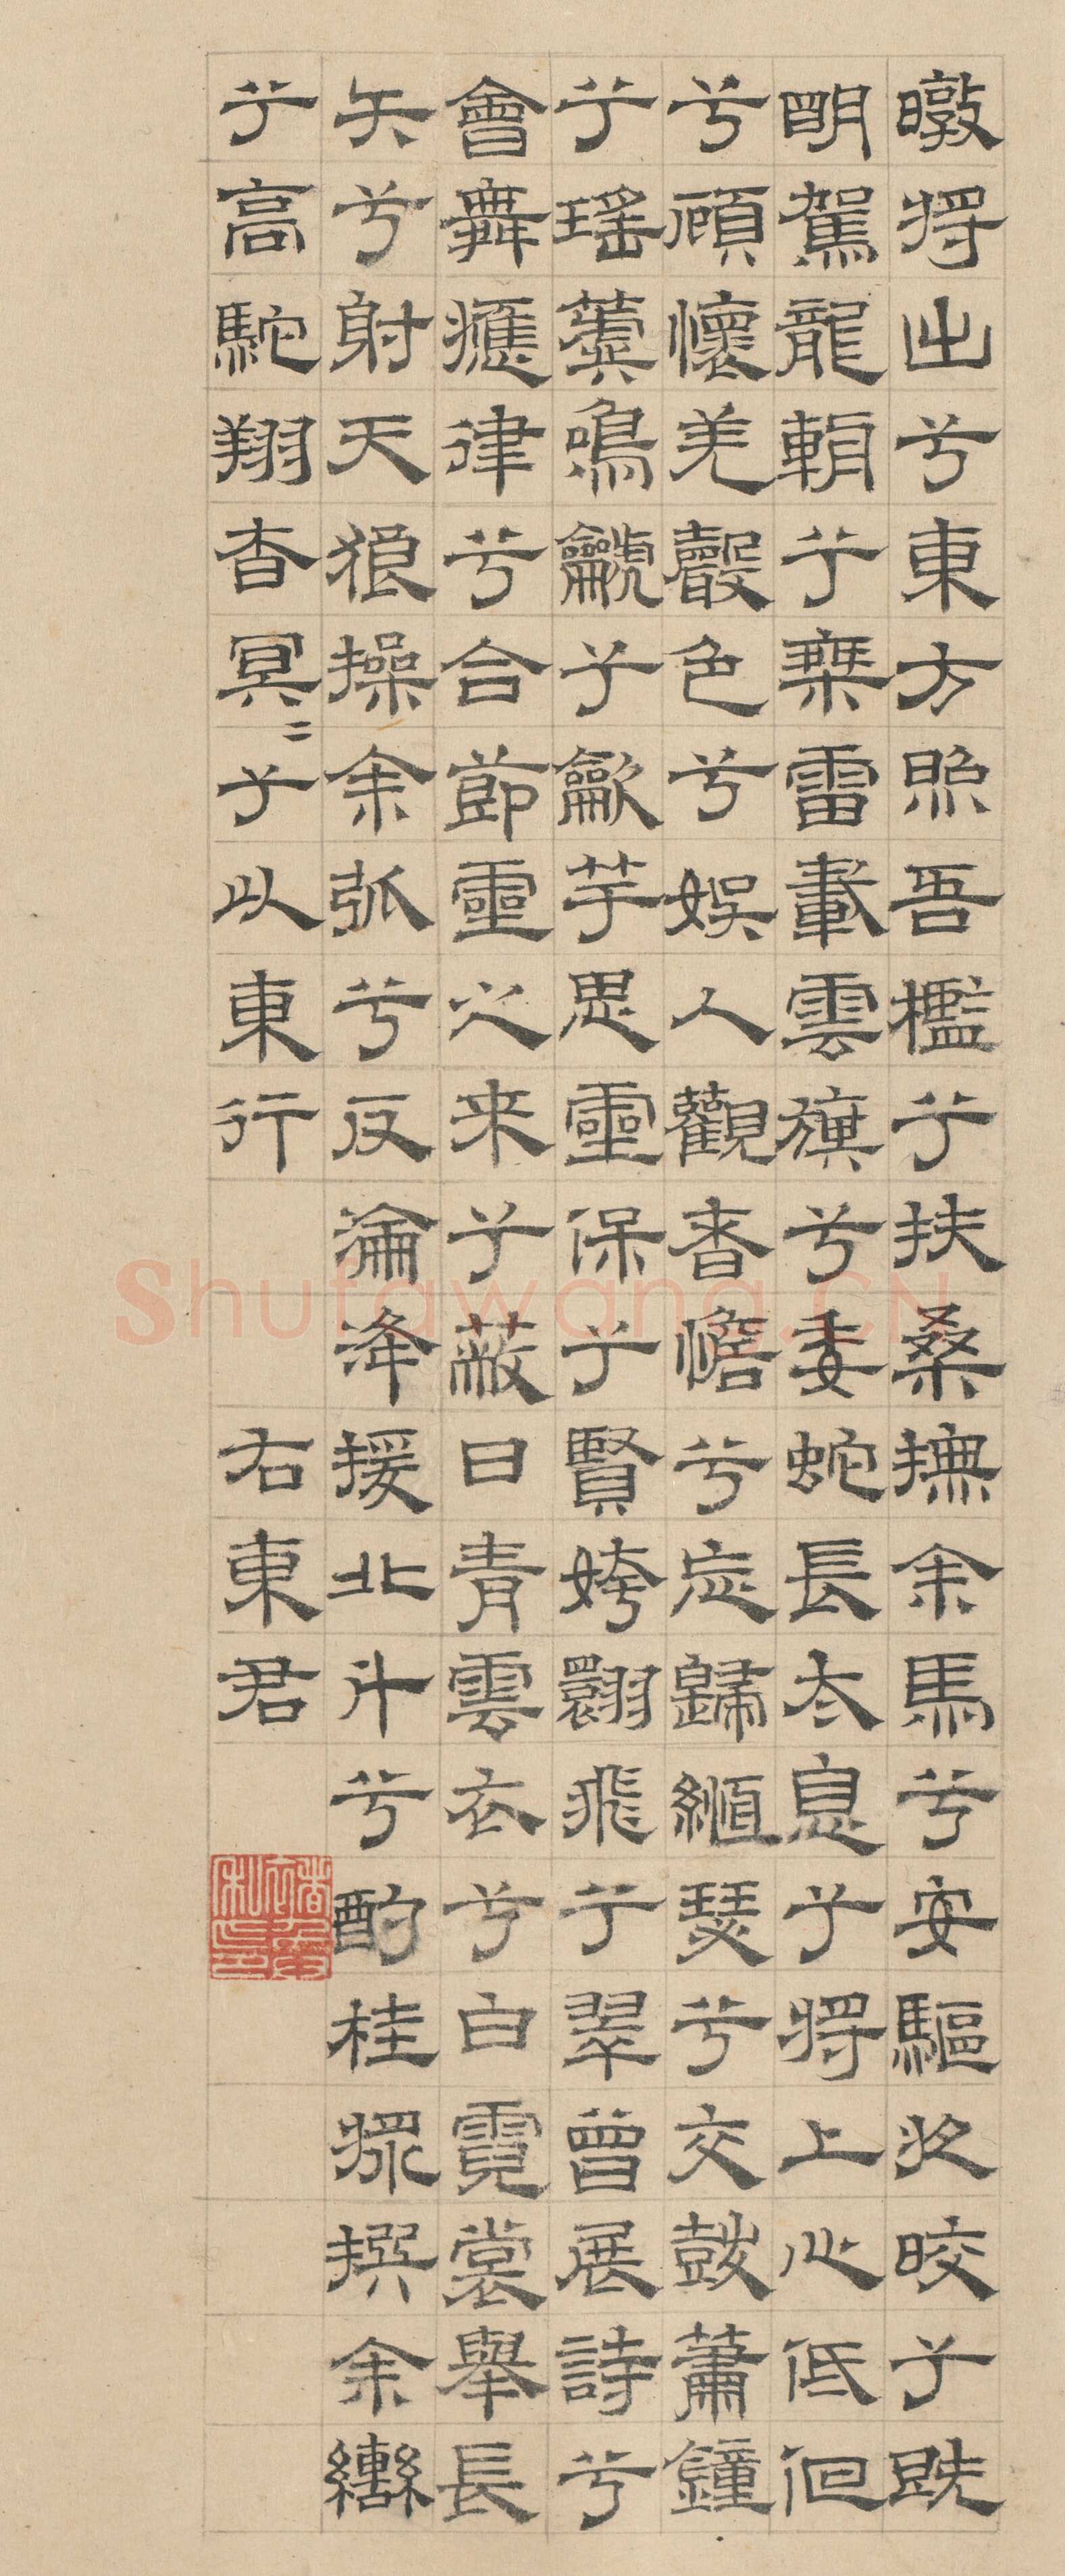 暾將出兮東方照吾檻兮扶桑撫余馬兮安驅夜晈兮既
明駕龍輈兮乘雷載雲旗兮委蛇長太息兮將上心低佪
兮顧懷羌聲色兮娛人觀者憺兮忘歸緪瑟兮交鼓蕭鐘
兮瑤簴鳴䶵兮龡竽思靈保兮賢姱翾飛兮翠曾展詩兮
會舞應律兮合節靈之来兮蔽日青雲衣兮白霓裳舉長
矢兮射天狼操余弧兮反淪降援北斗兮酌桂漿撰余轡
兮高駝翔杳冥〻兮以東行 右東君
Shufawang.CN